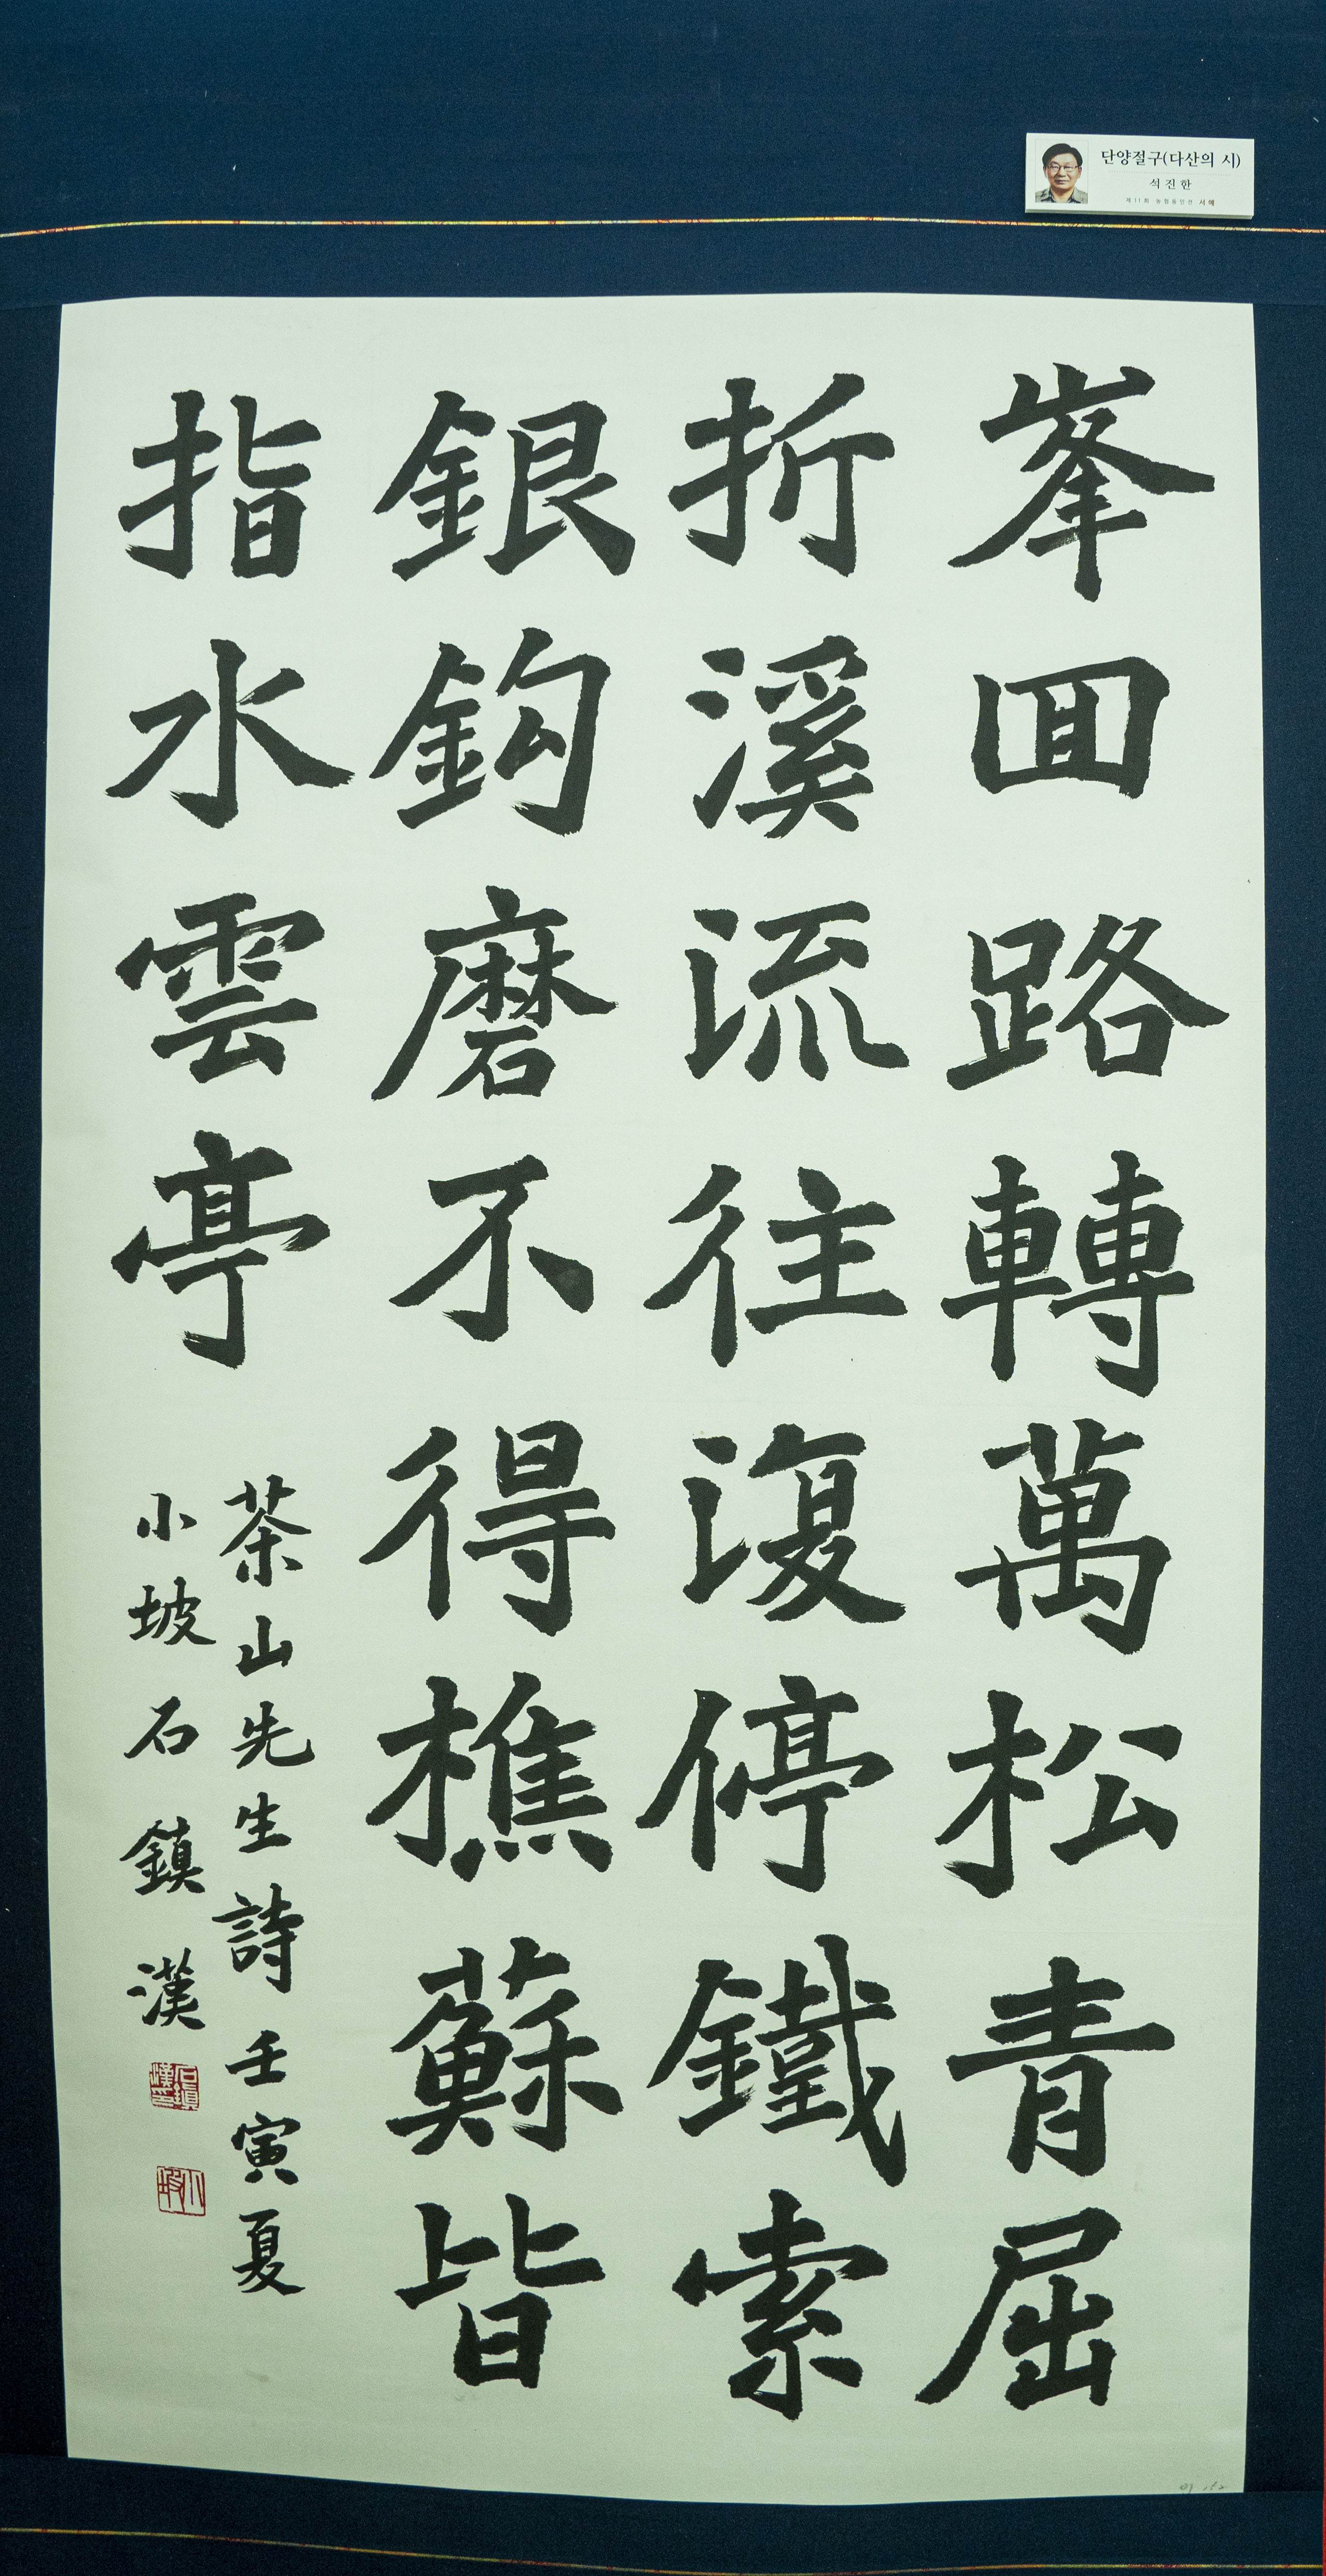 단양절구(다산의 시)
석진한
제11회 서예
峯囬路轉萬松青屈
折溪流往復停鐵索
銀鈎磨不得樵蘇皆
指水雲亭
茶山先生詩壬寅夏
小坡石鎭漢